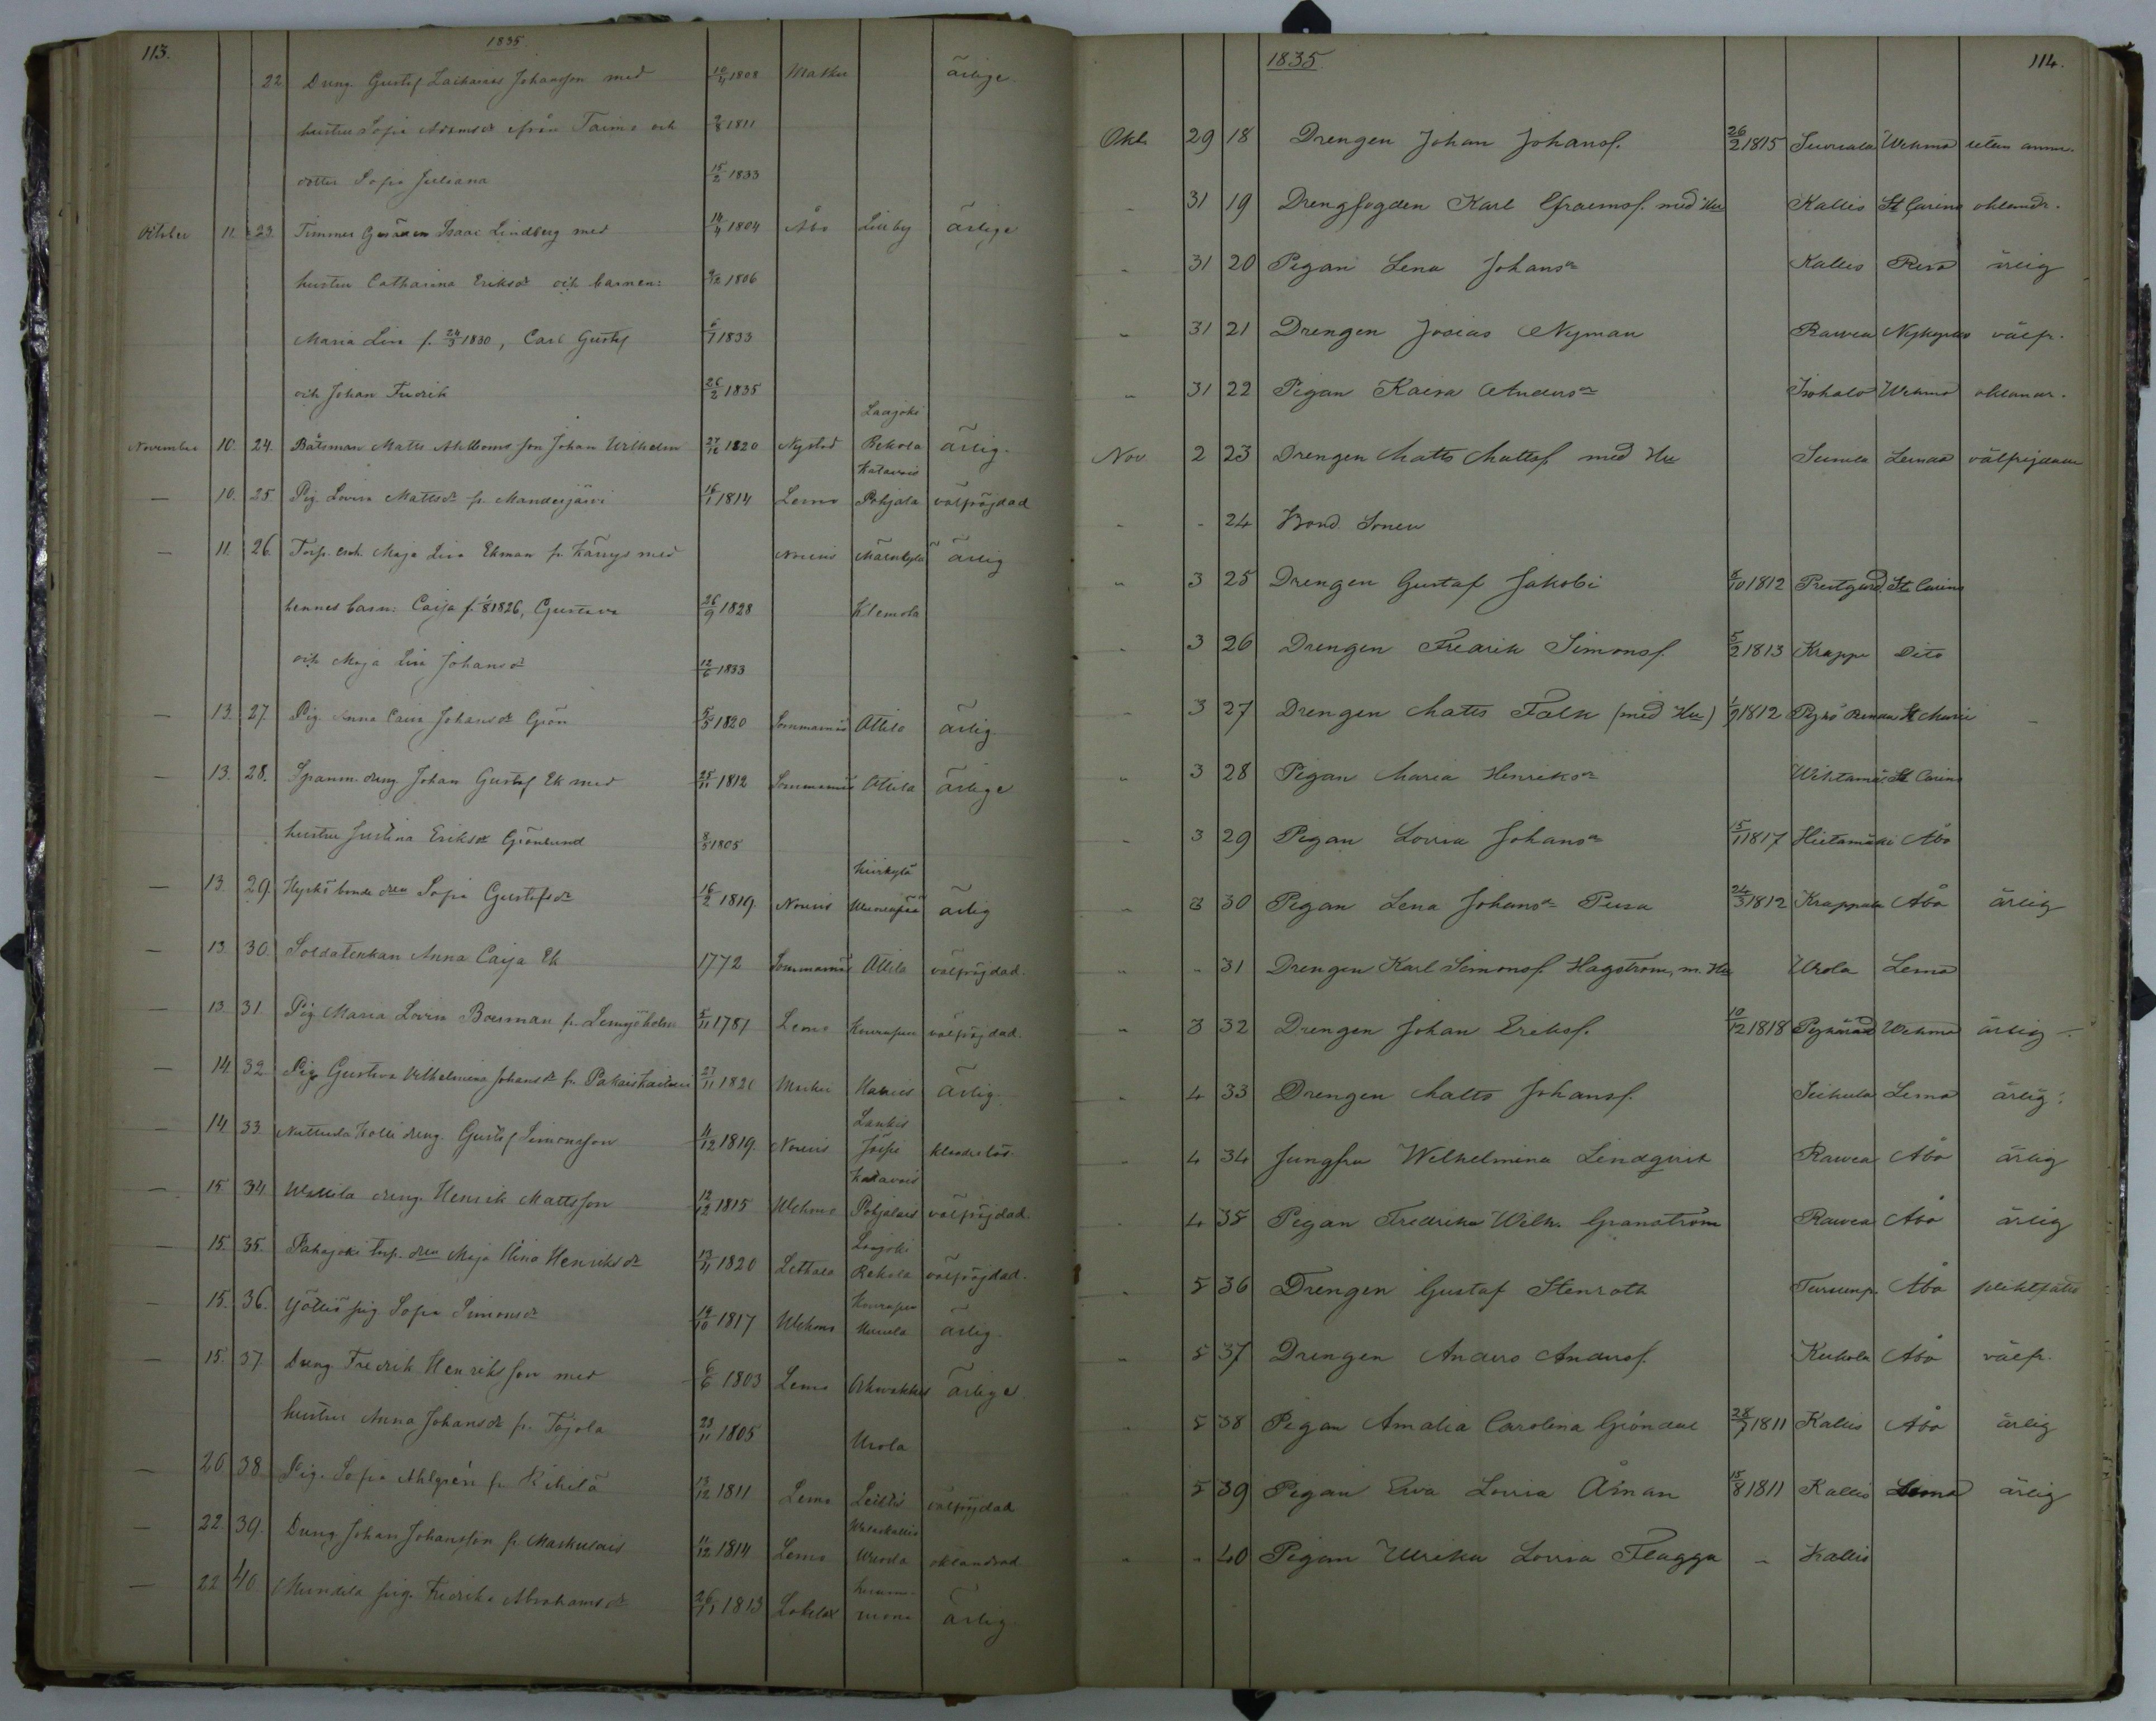 113.
1835.
22 Dreng. Gustaf Zacharias Johansson med 10/4 1808 Masku ärlige.
hustru Sofia Adamsdr ifrån Taimo och 2/8 1811
dotter Sofia Juliana 15/2 1833
October 11. 23. Timmer Isaac Lindberg med 14/4 1804 Åbo Lillby ärlige
hustru Catharina Eriksdr och barnen: 9/12 1806
Maria Lisa f. 24/3 1830, Carl Gustaf 6/7 1833
och Johan Fredrik 26/2 1835
Laajoki
November 10. 24. Båtsman Matts Ahlbloms son Johan Wilhelm 27/12 1820 Nystad Rekola ärlig.
Katavais
— 10. 25. Pig. Lovisa Mattsdr fr. Manderjärvi 16/1 1814 Lemo Pohjala välfrejdad
— 11. 26. Torp. enk. Maja Lisa Ekman fr. Kärrys med Nousis Mäenkylä ärlig
hennes barn: Caisa f. 1/8 1826, Gustava 26/9 1828 Klemola
och Maja Lisa Johansdr 12/6 1833
— 13. 27. Pig. Anna Caisa Johansdr Grön 5/5 1820 Sommarnäs Attila ärlig
— 13. 28. Spanm. dreng Johan Gustaf Ek med 25/11 1812 Sommarnäs Attila ärlige
hustru Justina Eriksdr Grönlund 8/5 1805
— 13. 29. Hyrkö bonde dren Sofia Gustafsdr 16/2 1819. Nousis ärlig
— 13. 30. Soldatenkan Anna Caisa Ek 1772 Sommarnäs Attila välfrejdad.
— 13. 31. Pig. Maria Lovisa Boerman fr. Lemsjöholm 5/11 1781 Lemo Kourapen välfrejdad.
— 14. 32. Pig. Gustava Vilhelmina Johansdr fr. 27/11 1821 Masku ärlig.
— 14. 33. Nuttula Kolli dreng. Gustaf Simonsson 4/12 1819. Nousis klanderlös.
Katavais
— 15. 34. Wallila dreng. Henrik Mattsson 12/12 1815 Wehmo Pohjalais välfrejdad.
Laajoki
— 15. 35. Pahajoki torp. dren Maja Stina Henriksdr 13/4 1820 Lethala Rekola välfrejdad.
— 15. 36. Yöttis pig. Sofia Simonsdr 14/10 1817 Wehmo ärlig.
— 15. 37. Dreng. Fredrik Henriksson med 6/6 1803 Lemo ärlige
hustru Anna Johansdr fr. Tojola 23/11 1805 Urola
— 20. 38. Pig. Sofia Ahlgrén fr. Kikilä 13/12 1811 Lemo Leiltis välfrejdad
— 22. 39. Dreng. Johan Johansson fr. Maskulais 11/12 1814 Lemo oklandrad
— 22. 40. Mundila pig. Fredrika Abrahamsdr 26/11 1813 Lokalax ärlig
1835.
114.
Okt. 29 18 Drengen Johan Johansf. 26/2 1815 Suurala Wehmo utan anm.
" 31 19 Drengfogden Karl Efraimsf. med Hu Kallis St Carins oklandr.
" 31 20 Pigan Lena Johansdr Kallis Reso ärlig
" 31 21 Drengen Josias Nyman Rawea Nykyrko välfr.
" 31 22 Pigan Kaisa Andersdr Isohalo Wehmo oklandr.
Nov 2 23 Drengen Matts Mattsf. med Hu Lemo välfrejdade
" - 24 Bond Sonen
" 3 25 Drengen Gustaf Jakobi 8/10 1812 Prestgård St Carins
" 3 26 Drengen Fredrik Simonsf. 5/2 1813 Krappe Dito
" 3 27 Drengen Matts Falk (med Hu) 1/9 1812 St Marie
" 3 28 Pigan Maria Henriksdr St Carins
" 3 29 Pigan Lovisa Johansdr 15/1 1817 Hietamäki Åbo
" 3 30 Pigan Lena Johansdr Pusa 24/3 1812 Krappala Åbo ärlig
" " 31 Drengen Karl Simonsf. Hagström, m. Hu Urola Lemo
" 3 32 Drengen Johan Eriksf. 10/12 1818 Wehmo ärlig -
" 4 33 Drengen Matts Johansf. Seikula Lemo ärlig.
" 4 34 Jungfru Wilhelmina Lindqvist Rawea Åbo ärlig
" 4 35 Pigan Fredrika Wilh. Granström Rawea Åbo ärlig
" 5 36 Drengen Gustaf Stenroth Åbo
" 5 37 Drengen Anders Andersf. Kukola Åbo välfr.
" 5 38 Pigan Amalia Carolina Gröndal 28/7 1811 Kallis Åbo ärlig
" 5 39 Pigan Eva Lovisa Åman 15/8 1811 Kallis Lemo ärlig
" " 40 Pigan Ulrika Lovisa Flagga - Kallis